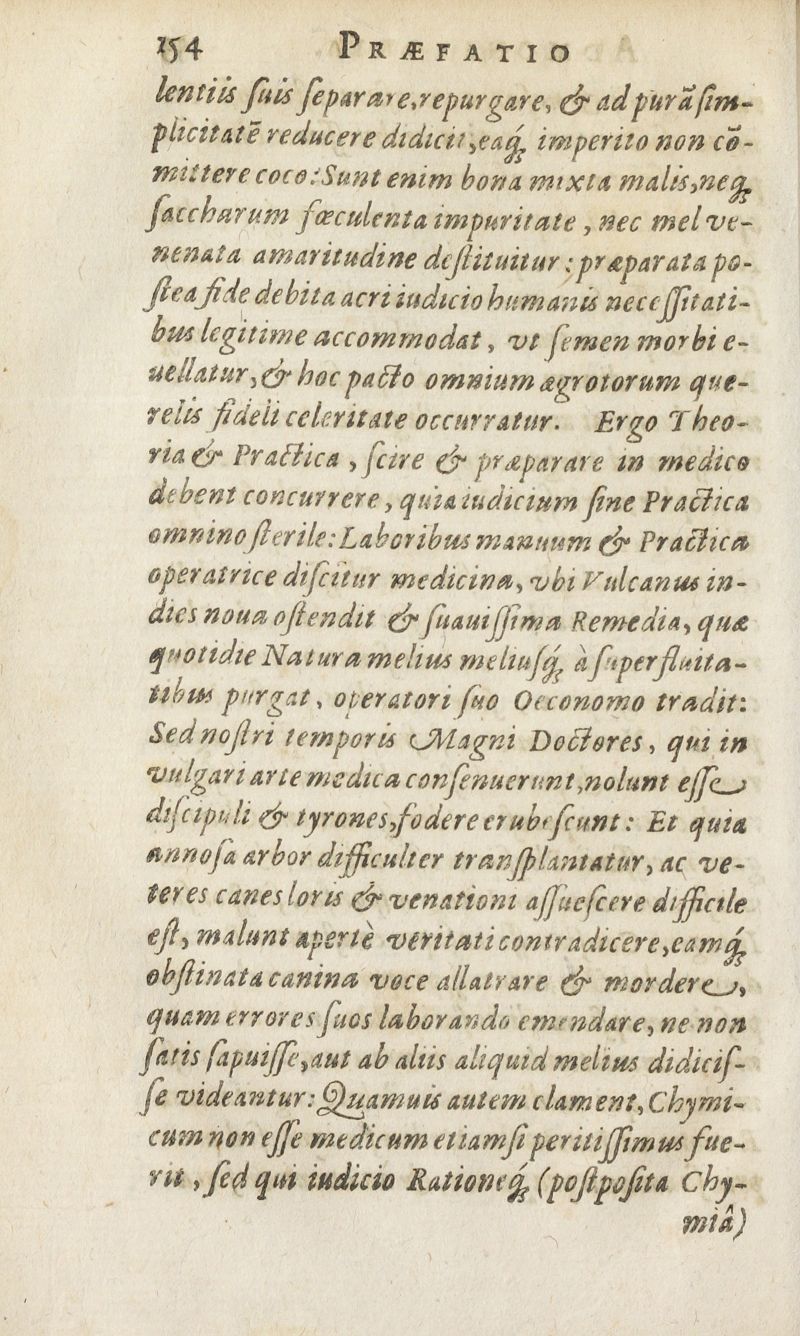 154 PRÆFATIO
lentiis ſuis ſeparare, repurgare, & ad purā ſim-
plicitatē reducere didicit, eaq́; imperito non cō-
mittere coco: Sunt enim bona mixta malis, neq;
ſaccharum fœculenta impuritate, nec mel ve-
nenata amaritudine deſtituitur; præparata po-
ſtea fide debita acri iudicio humanis neceſſitati-
bus legitime accommodat, vt ſemen morbi e-
uellatur, & hoc pacto omnium ægrotorum que-
relis fideli celeritate occurratur. Ergo Theo-
ria & Practica, ſcire & præparare in medico
debent concurrere, quia iudicium ſine Practica
omnino ſterile: Laboribus manuum & Practica
operatrice diſcitur medicina, vbi Vulcanus in-
dies noua oſtendit & ſuauiſſima Remedia, quæ
quotidie Natura melius meliuſq́; à ſuperfluita-
tibus purgat, operatori ſuo Oeconomo tradit:
Sed noſtri temporis Magni Doctores, qui in
vulgari arte medica conſenuerunt, nolunt eſſe
diſcipuli & tyrones, fodere erubeſcunt: Et quia
annoſa arbor difficulter tranſplantatur, ac ve-
teres canes loris & venationi aſſueſcere difficile
eſt, malunt apertè veritati contradicere, eamq́;
obſtinata canina voce allatrare & mordere,
quam errores ſuos laborando emendare, ne non
ſatis ſapuiſſe, aut ab aliis aliquid melius didiciſ-
ſe videantur: Quamuis autem clament, Chymi-
cum non eſſe medicum etiamſi peritiſſimus fue-
rit, ſed qui iudicio Rationeq́; (poſtpoſita Chy-
miâ)